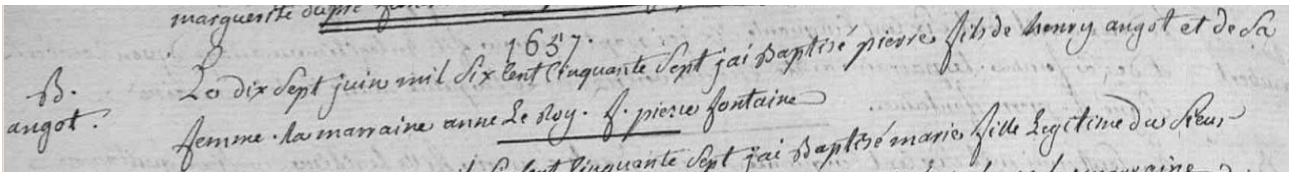 marguerite dupré
1657.
B.
angot.
Le dix Sept juin mil Six Cent Cinquante Sept jai Baptisé pierre fils de henry angot et de Sa
femme. la marraine anne Le Roy. f. pierre fontaine
Cent Cinquante Sept jai Baptisé marie fille Legitime du Sieur
marraine